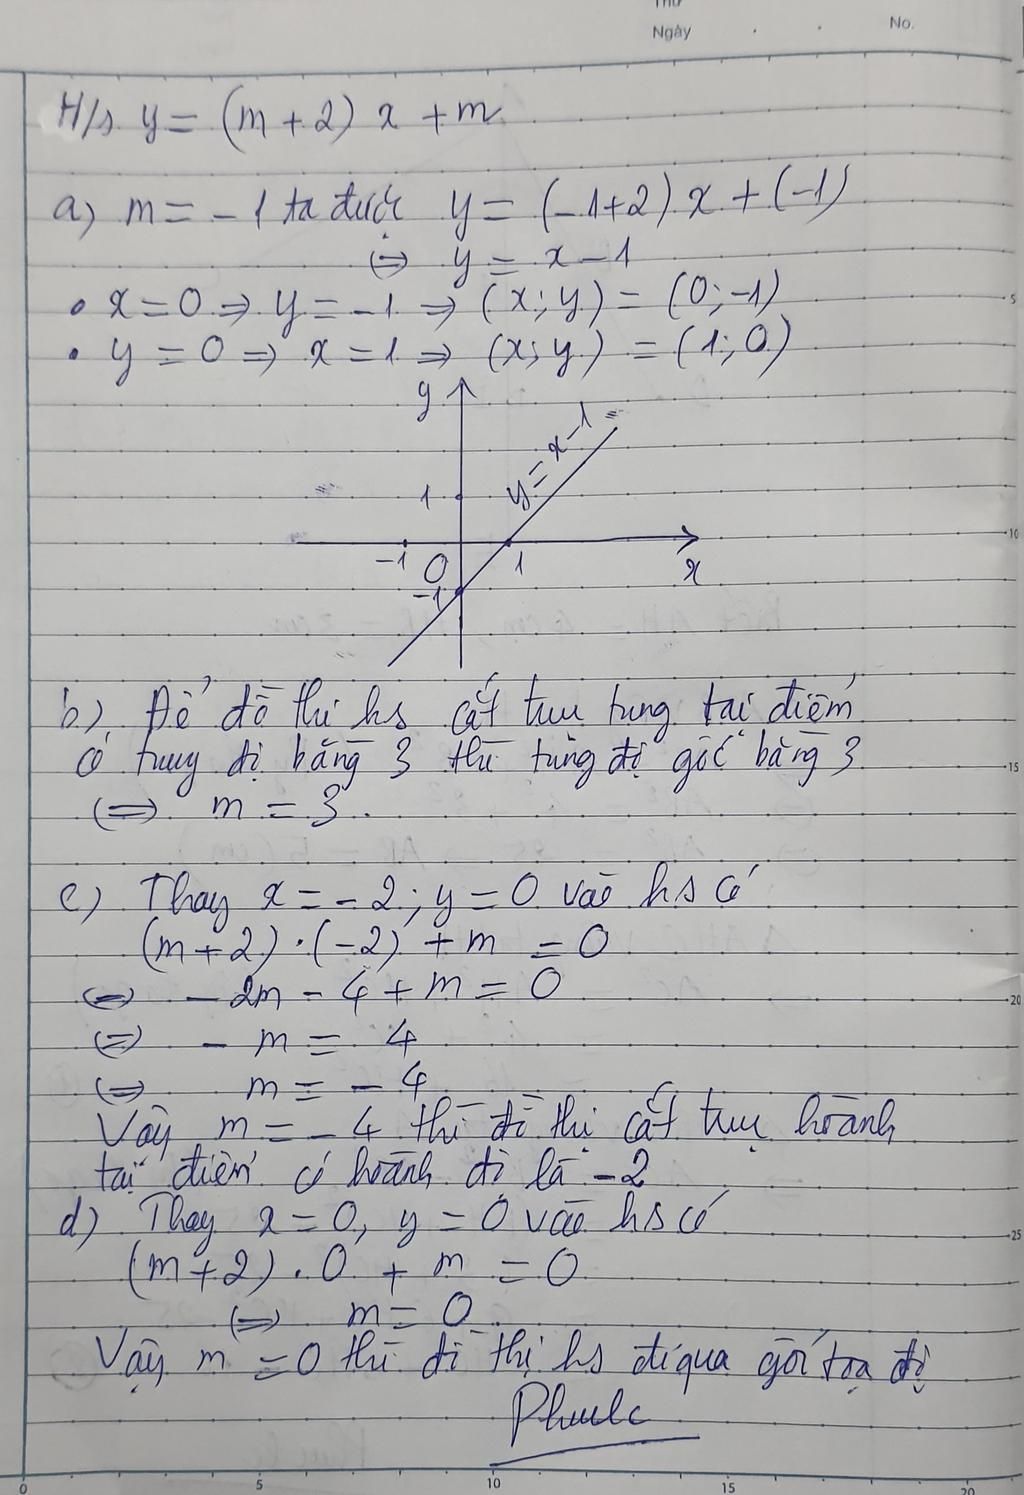 Thứ
Ngày
No.
H/s y = (m + 2) x + m
a) m = - 1 ta được y = (-1+2) x + (-1)
⇔ y = x - 1
• x = 0 ⇒ y = -1 ⇒ (x; y) = (0; -1)
• y = 0 ⇒ x = 1 ⇒ (x; y) = (1; 0)
y
y = x - 1
1
-1 0 1 x
-1
b) Để đồ thị hs cắt trục tung tại điểm
có tung độ bằng 3 thì tung độ gốc bằng 3
⇔ m = 3.
c) Thay x = - 2; y = 0 vào hs có
(m + 2) . (-2) + m = 0
⇔ - 2m - 4 + m = 0
⇔ - m = 4
⇔ m = - 4
Vậy m = - 4 thì đồ thị cắt trục hoành
tại điểm có hoành độ là -2
d) Thay x = 0, y = 0 vào hs có
(m + 2) . 0 + m = 0
⇔ m = 0
Vậy m = 0 thì đồ thị hs đi qua gốc toạ độ
5
10
15
20
25
0 5 10 15 20